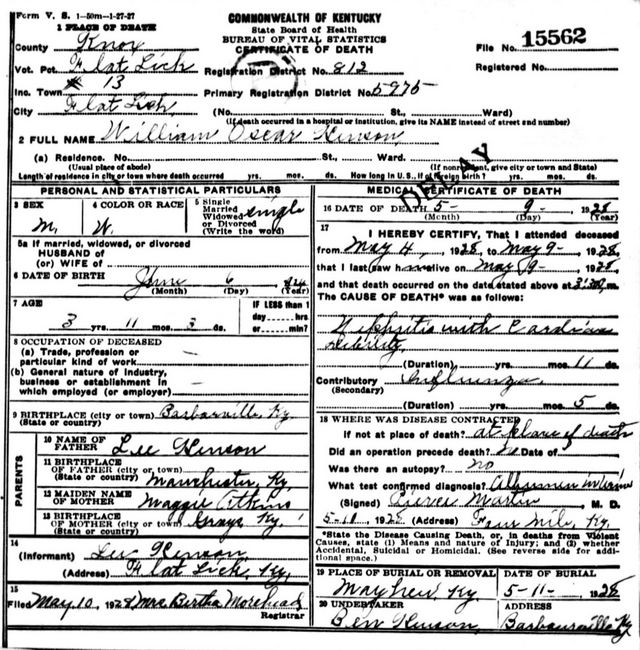 Form V. S. 1-50m-1-27-27
COMMONWEALTH OF KENTUCKY
State Board of Health
BUREAU OF VITAL STATISTICS
CERTIFICATE OF DEATH
1 PLACE OF DEATH
County Knox
File No. 15562
Vot. Pct. Flat Lick # 13
Registration District No. 812
Registered No.
Inc. Town
Primary Registration District No. 5975
City Flat Lick
(No. St., Ward)
(If death occurred in a hospital or institution, give its NAME instead of street and number)
2 FULL NAME William Oscar Hinson
(a) Residence. No. St., Ward.
(Usual place of abode)
(If nonresident, give city or town and State)
Length of residence in city or town where death occurred yrs. mos. ds. How long in U. S., if of foreign birth? yrs. mos. ds.
DELAY
PERSONAL AND STATISTICAL PARTICULARS
3 SEX M.
4 COLOR OR RACE W.
5 Single Married Widowed or Divorced (Write the word) single
5a If married, widowed, or divorced
HUSBAND of
(or) WIFE of
6 DATE OF BIRTH June 6 1924
(Month) (Day) (Year)
7 AGE
3 yrs. 11 mos. 3 ds.
IF LESS than 1 day, hrs. or min.?
8 OCCUPATION OF DECEASED
(a) Trade, profession or particular kind of work
(b) General nature of industry, business or establishment in which employed (or employer)
9 BIRTHPLACE (city or town) Barbourville, Ky
(State or country)
PARENTS
10 NAME OF FATHER Lee Hinson
11 BIRTHPLACE OF FATHER (city or town) Manchester, Ky.
(State or country)
12 MAIDEN NAME OF MOTHER Maggie Atkins
13 BIRTHPLACE OF MOTHER (city or town) Grays Ky.
(State or country)
14
(Informant) Lee Hinson
(Address) Flat Lick, Ky.
15
Filed May 10, 1928 Mrs Bertha Morehead
Registrar
MEDICAL CERTIFICATE OF DEATH
16 DATE OF DEATH 5- 9- 1928
(Month) (Day) (Year)
17
I HEREBY CERTIFY, That I attended deceased
from May 4, 1928, to May 9- 1928,
that I last saw him alive on May 9- 1928,
and that death occurred on the date stated above at m.
The CAUSE OF DEATH* was as follows:
Nephritis with Cardiac
debility
(Duration) yrs. mos. 11 ds.
Contributory Influenza
(Secondary)
(Duration) yrs. mos. 5 ds.
18 WHERE WAS DISEASE CONTRACTED
If not at place of death? at place of death
Did an operation precede death? no Date of
Was there an autopsy? no
What test confirmed diagnosis? Albumin in Urine
(Signed) Pierce Martin, M. D.
5-11, 1928 (Address) Four Mile, Ky.
*State the Disease Causing Death, or, in deaths from Violent
Causes, state (1) Means and nature of Injury; and (2) whether
Accidental, Suicidal or Homicidal. (See reverse side for addi-
tional space.)
19 PLACE OF BURIAL OR REMOVAL
Mayhew Ky
DATE OF BURIAL
5-11- 1928
20 UNDERTAKER
Ben Hinson
ADDRESS
Barbourville Ky